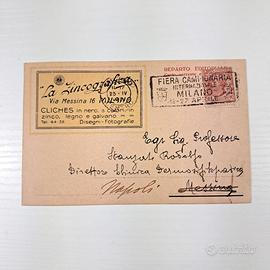 "La Zincografica"
Via Messina 16 MILANO
CLICHÉS in nero, a colori, in
zinco, legno e galvano. —
Disegni - Fotografie
Tel. 64-38
23 - IV
REPARTO
FIERA CAMPIONARIA
INTERNAZIONALE
MILANO
12-27 APRILE
Egr Sig Professore
Stanziale Rodolfo
Direttore Clinica Dermosifilopatica
Messina
Napoli
subito.it